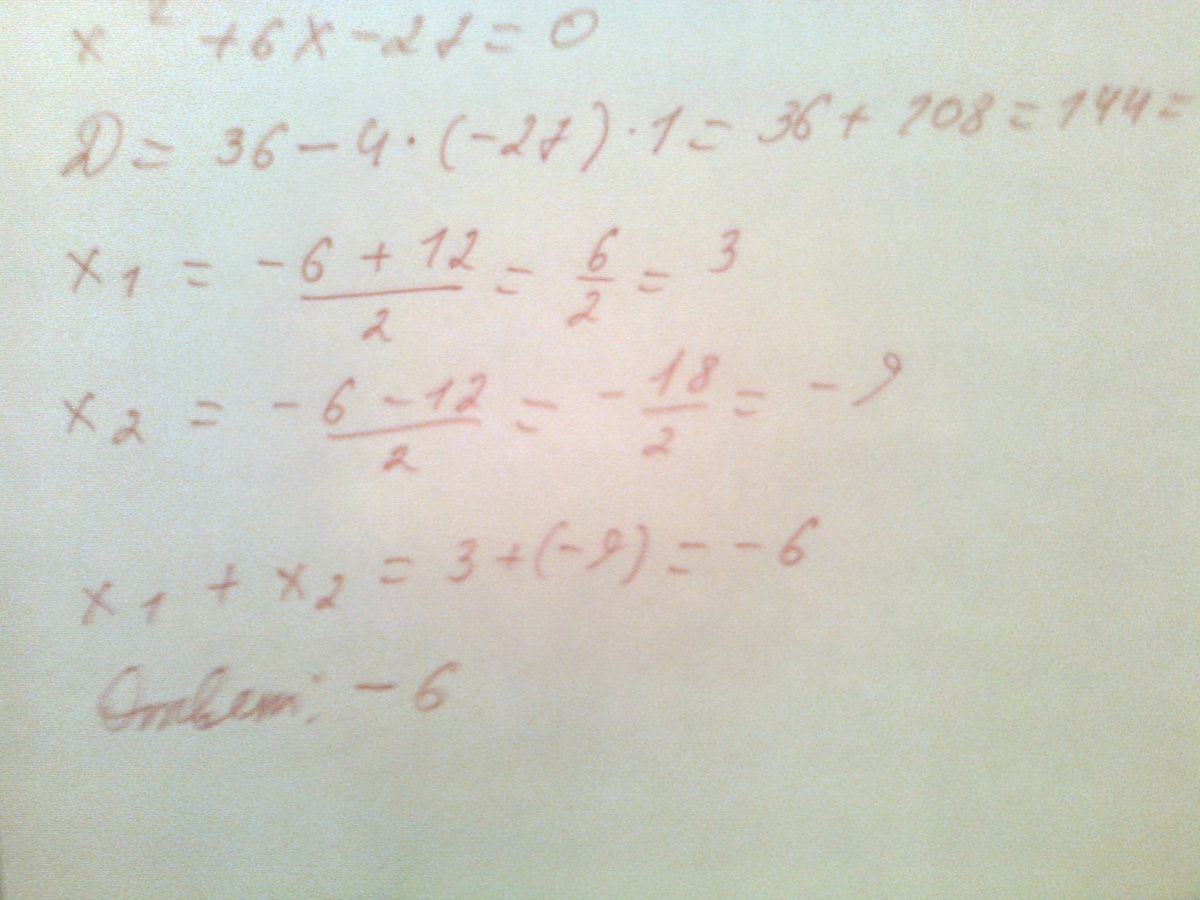 x² + 6x - 27 = 0
D = 36 - 4 · (-27) · 1 = 36 + 108 = 144 =
x₁ = -6 + 12 / 2 = 6/2 = 3
x₂ = -6 - 12 / 2 = -18/2 = -9
x₁ + x₂ = 3 + (-9) = -6
Ответ: -6